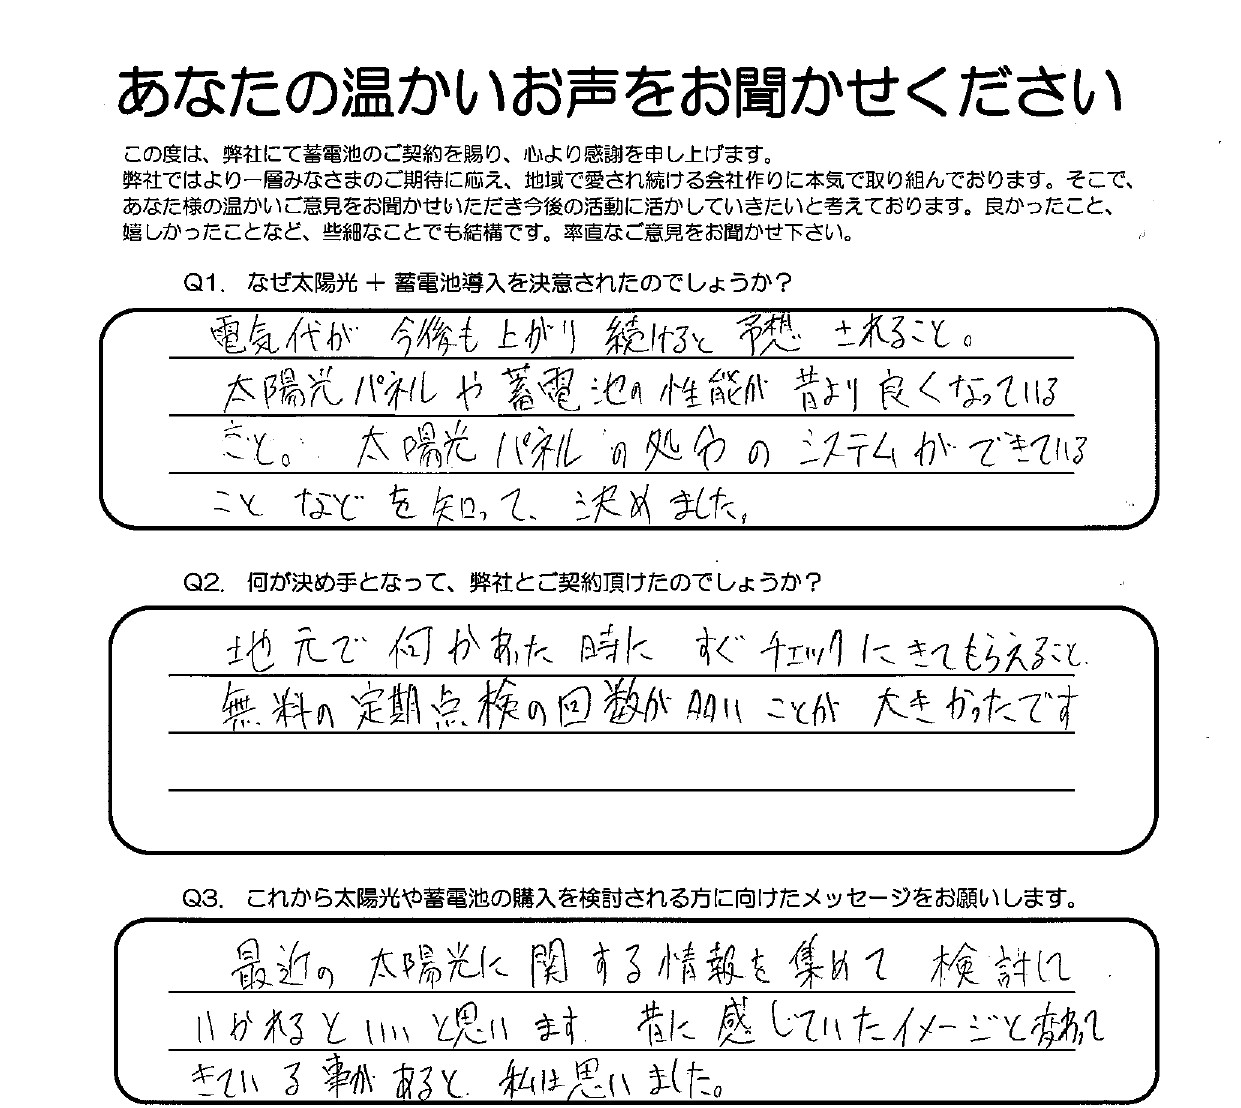 あなたの温かいお声をお聞かせください
この度は、弊社にて蓄電池のご契約を賜り、心より感謝を申し上げます。
弊社ではより一層みなさまのご期待に応え、地域で愛され続ける会社作りに本気で取り組んでおります。そこで、
あなた様の温かいご意見をお聞かせいただき今後の活動に活かしていきたいと考えております。良かったこと、
嬉しかったことなど、些細なことでも結構です。率直なご意見をお聞かせ下さい。
Q1. なぜ太陽光＋蓄電池導入を決意されたのでしょうか？
電気代が 今後も上がり 続けると 予想 されること。
太陽光パネルや蓄電池の性能が昔より良くなっている
こと。太陽光パネルの処分のシステムができている
ことなどを知って、決めました。
Q2. 何が決め手となって、弊社とご契約頂けたのでしょうか？
地元で何かあった時に すぐチェックにきてもらえること.
無料の定期点検の回数が多いことが 大きかったです
Q3. これから太陽光や蓄電池の購入を検討される方に向けたメッセージをお願いします。
最近の 太陽光に関する情報を集めて 検討して
いかれるといいと思います. 昔に感じていたイメージと変わって
きている事があると、私は思いました。